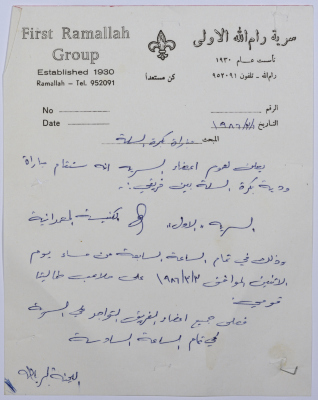 First Ramallah
Group
Established 1930
Ramallah – Tel. 952091
سرية رام الله الاولى
تأسست عام ١٩٣٠
رام الله - تلفون ٩٥٢٠٩١
كن مستعداً
No :
Date
الرقم
التاريخ
المبحث كرة السلة
يعلن لعموم اعضاء السرية انه ستقام مباراة
ودية بكرة السلة بين فريقي :-
السرية "الاول" &
وذلك في تمام الساعة السابعة من مساء يوم
الاثنين الموافق على ملاعب
فعلى جميع اعضاء الفريق التواجد في السرية
في تمام الساعة السادسة
اللجنة الرياضية